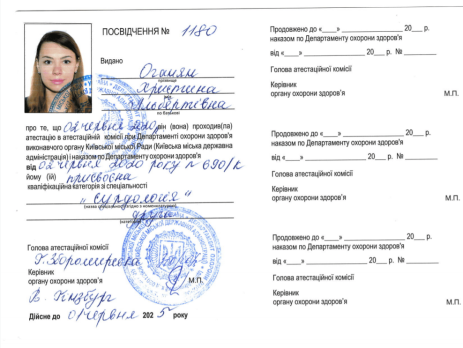 ПОСВІДЧЕННЯ № 1180
Видано Оганян
прізвище
Христина
ім'я
Альбертівна
по батькові
про те, що 02 червня 2020 він (вона) проходив(ла)
атестацію в атестаційній комісії при Департаменті охорони здоров'я
виконавчого органу Київської міської Ради (Київська міська державна
адміністрація) і наказом по Департаменту охорони здоров'я
від 02 червня 2020 року № 690/к
йому (їй) присвоєна
кваліфікаційна категорія зі спеціальності
"сурдологія"
друга
Голова атестаційної комісії
Керівник
органу охорони здоров'я
М.П.
Дійсне до 01 червня 2025 року
Продовжено до «____» ______________ 20___ р.
наказом по Департаменту охорони здоров'я
від «____» ______________ 20___ р. № ________
Голова атестаційної комісії
Керівник
органу охорони здоров'я
М.П.
Продовжено до «____» ______________ 20___ р.
наказом по Департаменту охорони здоров'я
від «____» ______________ 20___ р. № ________
Голова атестаційної комісії
Керівник
органу охорони здоров'я
М.П.
Продовжено до «____» ______________ 20___ р.
наказом по Департаменту охорони здоров'я
від «____» ______________ 20___ р. № ________
Голова атестаційної комісії
Керівник
органу охорони здоров'я
М.П.